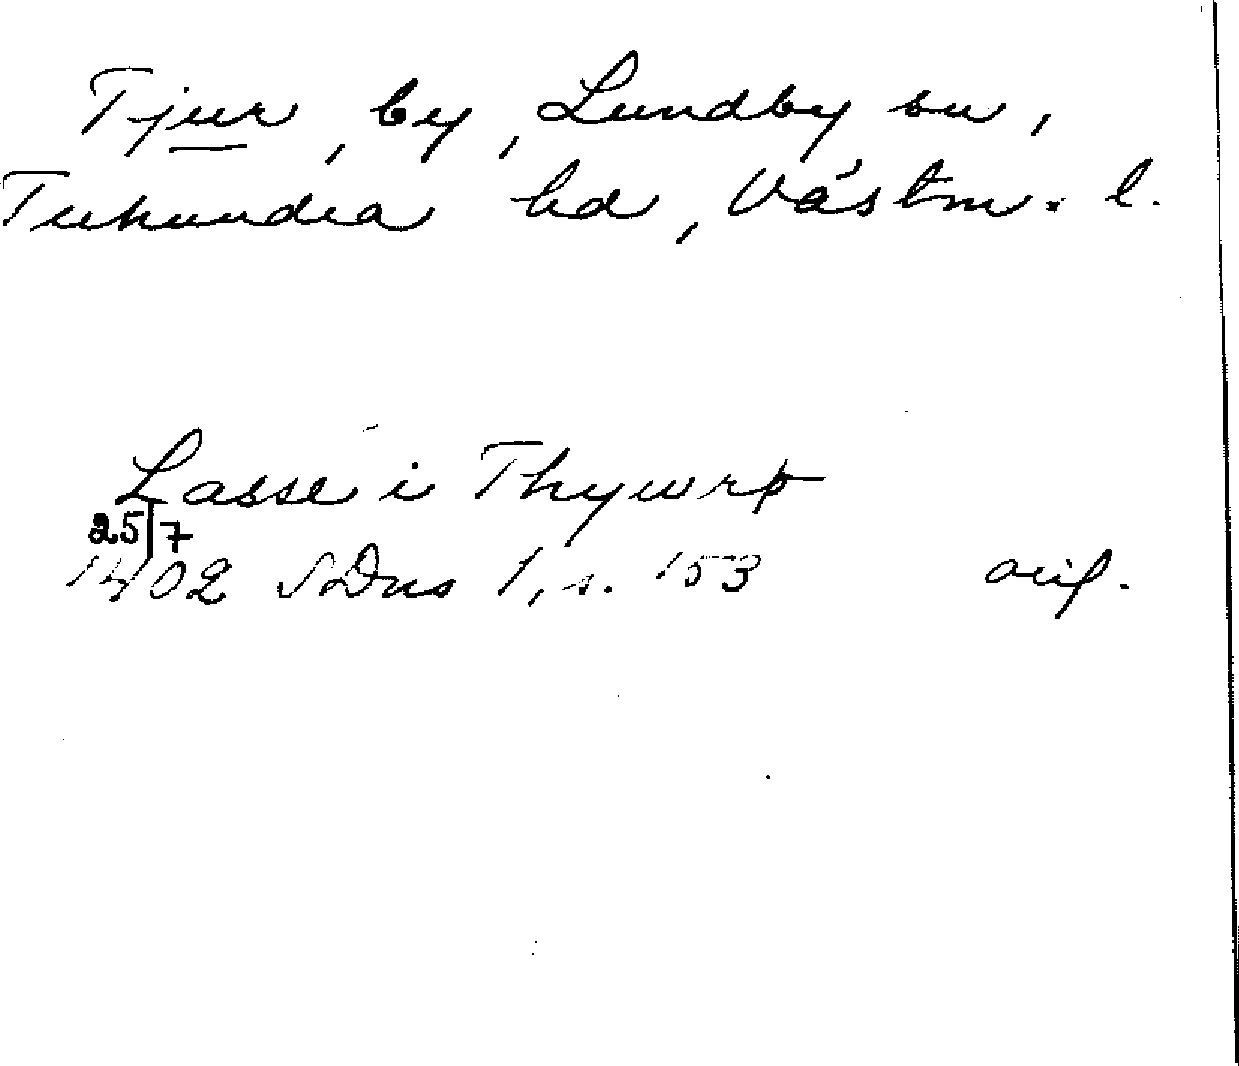 Tjur, by, Lundby sn,
Tuhundra hd, Västm. l.
Lasse i Thywrþ
25/7
1402 SDns 1, s. 153 orig.